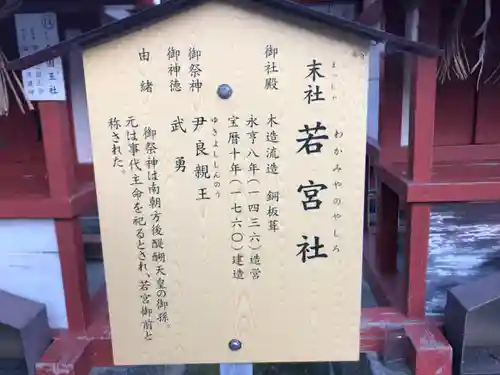 末社 若宮社
まっしゃ わかみやのやしろ
御社殿 木造流造 銅板葺
永享八年（一四三六）造営
宝暦十年（一七六〇）建造
御祭神 尹良親王
ゆきよししんのう
御神徳 武勇
由緒
御祭神は南朝方後醍醐天皇の御孫。
元は事代主命を祀るとされ、若宮御前と
称された。
国玉社